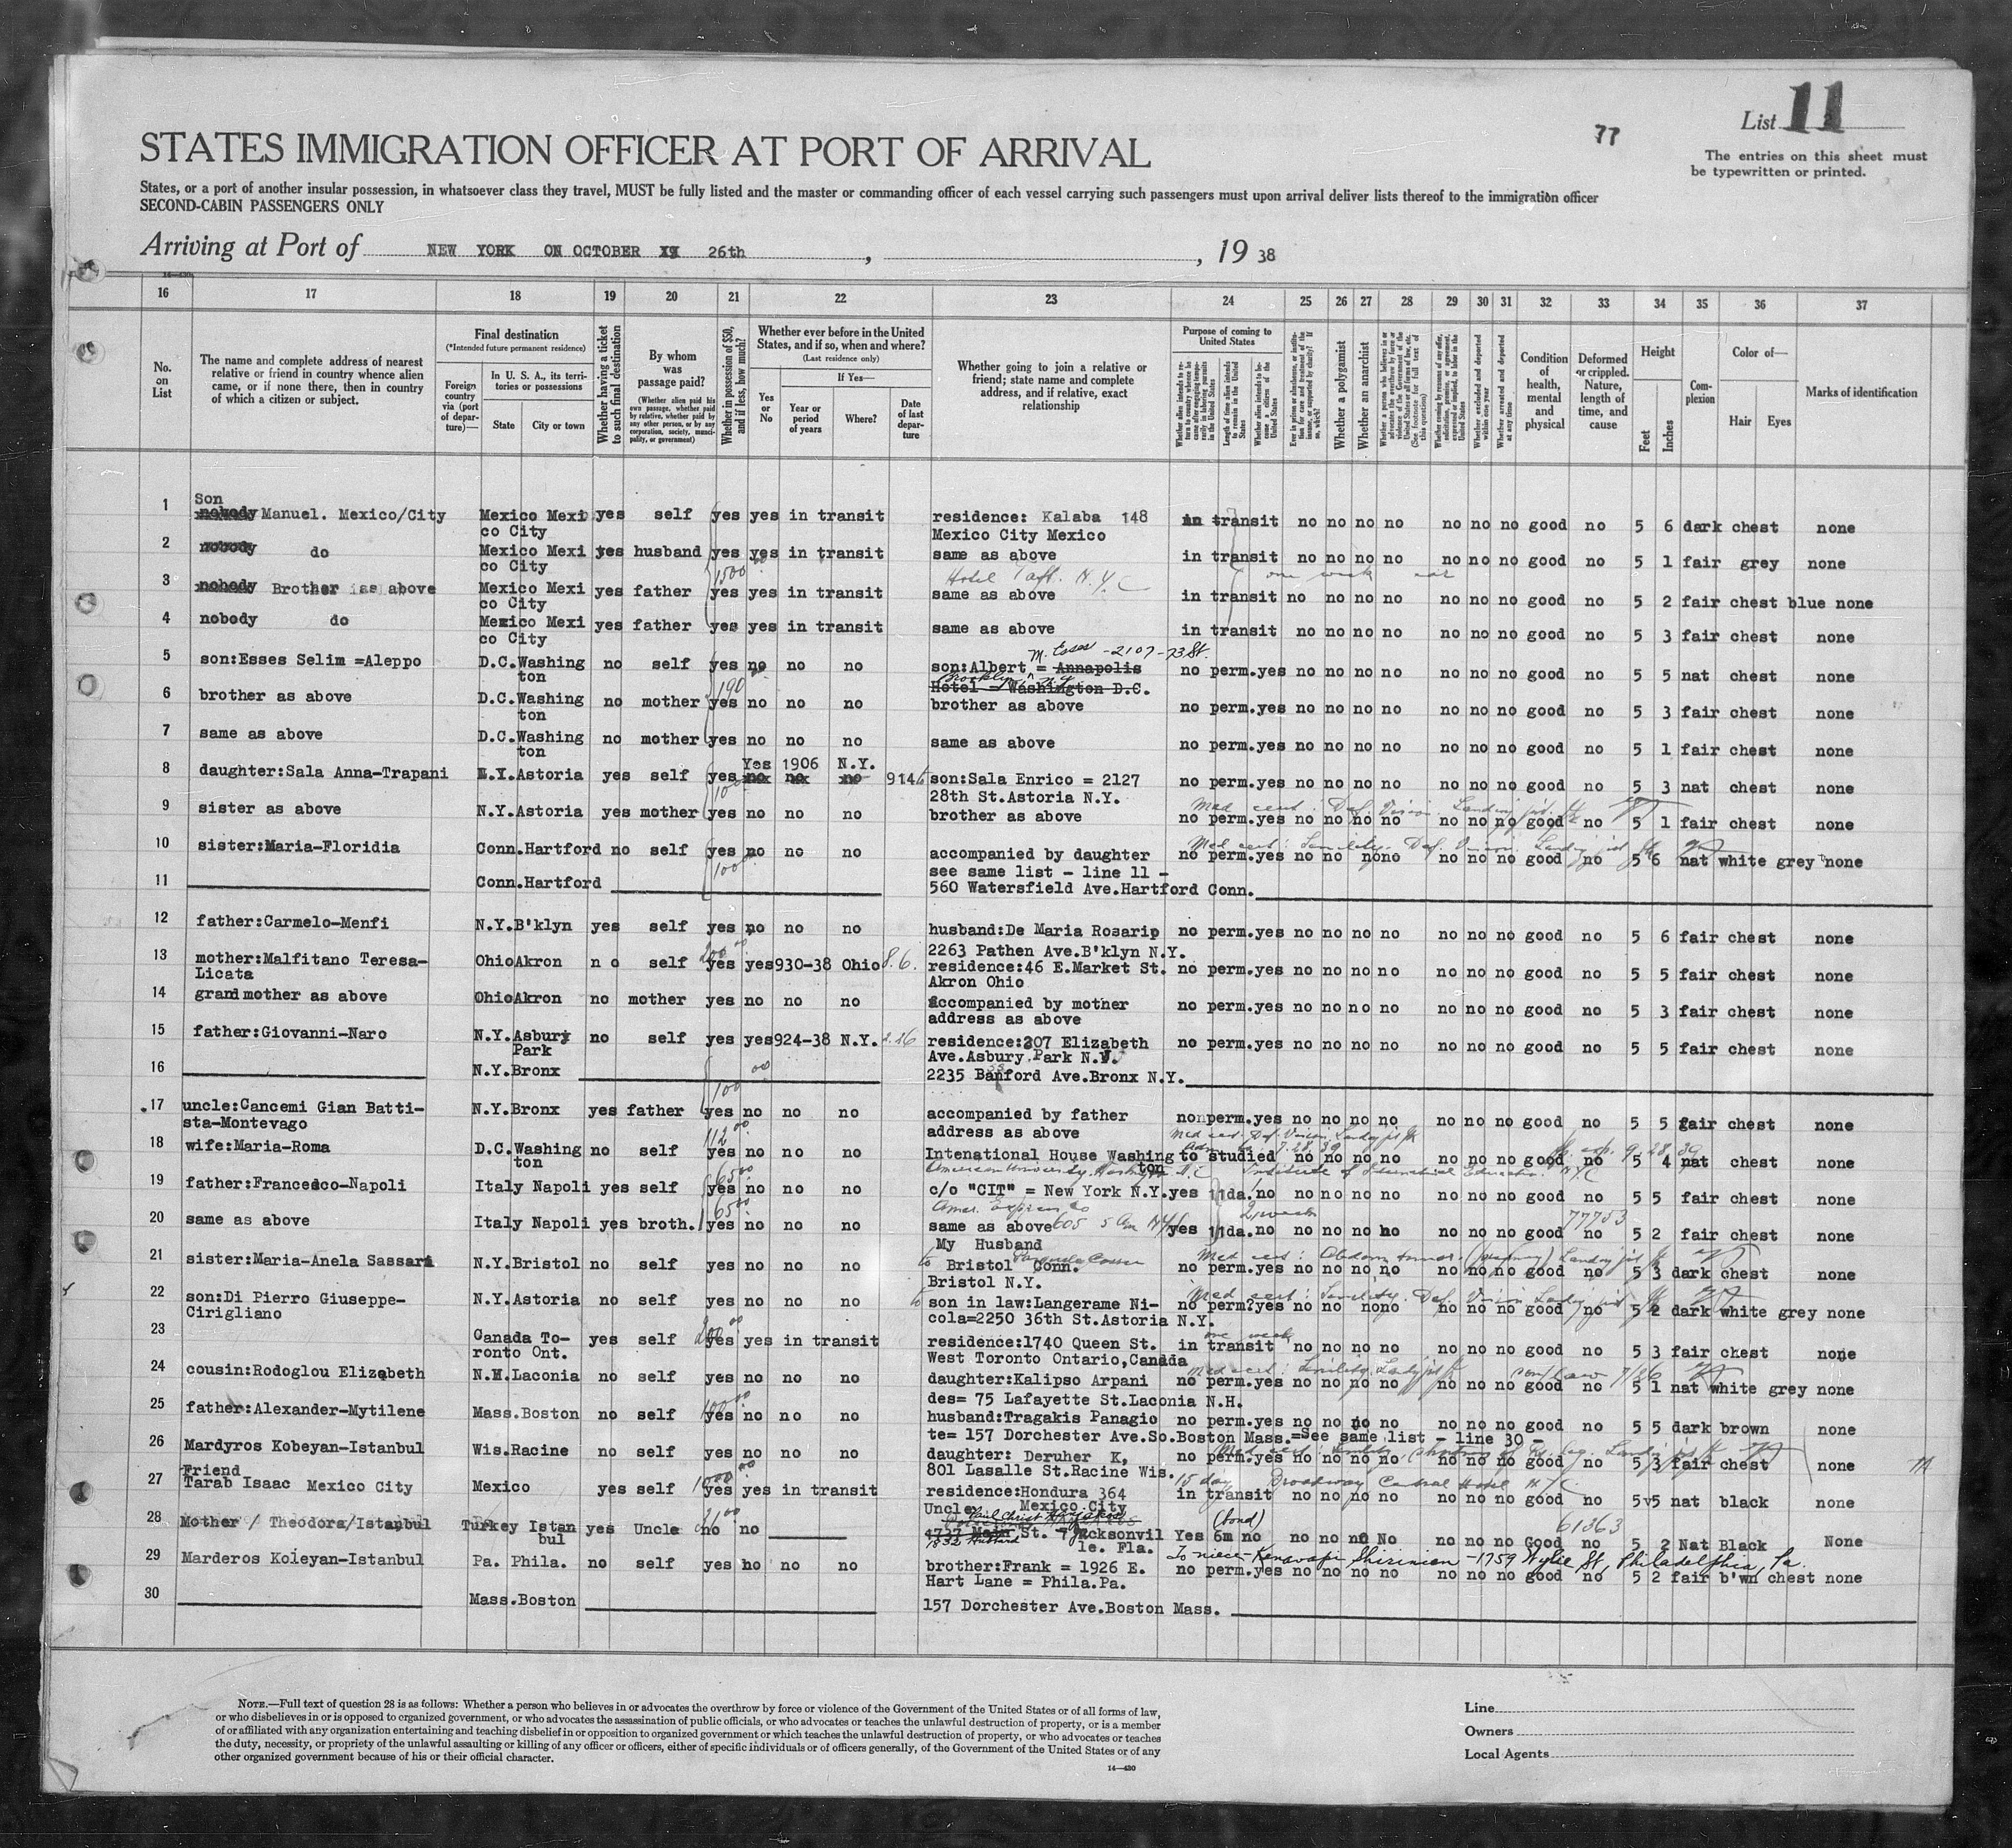 List 11
77
The entries on this sheet must
be typewritten or printed.
STATES IMMIGRATION OFFICER AT PORT OF ARRIVAL
States, or a port of another insular possession, in whatsoever class they travel, MUST be fully listed and the master or commanding officer of each vessel carrying such passengers must upon arrival deliver lists thereof to the immigration officer
SECOND-CABIN PASSENGERS ONLY
Arriving at Port of NEW YORK ON OCTOBER 26th , , 19 38
16 17 18 19 20 21 22 23 24 25 26 27 28 29 30 31 32 33 34 35 36 37
No. on List
The name and complete address of nearest relative or friend in country whence alien came, or if none there, then in country of which a citizen or subject.
Final destination
(*Intended future permanent residence)
Foreign country via (port of departure)—
In U. S. A., its territories or possessions
State
City or town
Whether having a ticket to such final destination
By whom was passage paid?
(Whether alien paid his own passage, whether paid by relative, whether paid by any other person, or by any corporation, society, municipality, or government)
Whether in possession of $50, and if less, how much?
Whether ever before in the United States, and if so, when and where?
(Last residence only)
Yes or No
If Yes—
Year or period of years
Where?
Date of last departure
Whether going to join a relative or friend; state name and complete address, and if relative, exact relationship
Purpose of coming to United States
Whether alien intends to return to country whence he came after engaging temporarily in laboring pursuits in the United States
Length of time alien intends to remain in the United States
Whether alien intends to become a citizen of the United States
Ever in prison or almshouse, or institution for care and treatment of the insane, or supported by charity? If so, which?
Whether a polygamist
Whether an anarchist
Whether a person who believes in or advocates the overthrow by force or violence of the Government of the United States or all forms of law, etc. (See footnote for full text of this question)
Whether coming by reason of any offer, solicitation, promise, or agreement, expressed or implied, to labor in the United States
Whether excluded and deported within one year
Whether arrested and deported at any time
Condition of health, mental and physical
Deformed or crippled. Nature, length of time, and cause
Height
Feet
Inches
Complexion
Color of—
Hair
Eyes
Marks of identification
Son
1 nobody Manuel. Mexico/City Mexico Mexi yes self yes yes in transit residence: Kalaba 148 in transit no no no no no no no good no 5 6 dark chest none
co City Mexico City Mexico
2 nobody do Mexico Mexi yes husband yes yes in transit same as above in transit no no no no no no no good no 5 1 fair grey none
co City 1500 Hotel Taft. N.Y.C one week
3 nobody Brother as above Mexico Mexi yes father yes yes in transit same as above in transit no no no no no no no good no 5 2 fair chest blue none
co City
4 nobody do Mexico Mexi yes father yes yes in transit same as above in transit no no no no no no no good no 5 3 fair chest none
co City
M. Esses - 2107 - 73 St.
5 son:Esses Selim =Aleppo D.C. Washing no self yes no no no son:Albert = Annapolis no perm.yes no no no no no no no good no 5 5 nat chest none
ton 190 Brooklyn, N.Y.
Hotel = Washington D.C.
6 brother as above D.C. Washing no mother yes no no no brother as above no perm.yes no no no no no no no good no 5 3 fair chest none
ton
7 same as above D.C. Washing no mother yes no no no same as above no perm.yes no no no no no no no good no 5 1 fair chest none
ton
Yes 1906 N.Y.
8 daughter:Sala Anna-Trapani N.Y. Astoria yes self yes no no no 914 son:Sala Enrico = 2127 no perm.yes no no no no no no no good no 5 3 nat chest none
100 28th St.Astoria N.Y.
Med cert. Def. Vision. Landing
9 sister as above N.Y. Astoria yes mother yes no no no brother as above no perm.yes no no no no no no no good no 5 1 fair chest none
Med cert: Senility. Def. Vision. Landing
10 sister:Maria-Floridia Conn. Hartford no self yes no no no accompanied by daughter no perm.yes no no nono no no no good no 5 6 nat white grey none
100 see same list - line 11 -
11 Conn. Hartford 560 Watersfield Ave.Hartford Conn.
12 father:Carmelo-Menfi N.Y. B'klyn yes self yes no no no husband:De Maria Rosario no perm.yes no no no no no no no good no 5 6 fair chest none
200 2263 Pathen Ave.B'klyn N.Y.
13 mother:Malfitano Teresa- Ohio Akron no self yes yes 930-38 Ohio 8.6. residence:46 E.Market St. no perm.yes no no no no no no no good no 5 5 fair chest none
Licata Akron Ohio
14 grand mother as above Ohio Akron no mother yes no no no accompanied by mother no perm.yes no no no no no no no good no 5 3 fair chest none
address as above
15 father:Giovanni-Naro N.Y. Asbury no self yes yes 924-38 N.Y. 2.26 residence:207 Elizabeth no perm.yes no no no no no no no good no 5 5 fair chest none
Park Ave.Asbury Park N.J.
16 N.Y. Bronx 2235 Banford Ave.Bronx N.Y.
100
17 uncle:Cancemi Gian Batti- N.Y. Bronx yes father yes no no no accompanied by father no perm.yes no no no no no no no good no 5 5 fair chest none
sta-Montevago address as above
112 Med cert. Def. Vision. Landing
18 wife:Maria-Roma D.C. Washing no self yes no no no International House Washing to studied no no no no no no no good no 5 4 nat chest none
ton ton American University, D.C. Institute of International Education N.Y.C
65
19 father:Francesco-Napoli Italy Napoli yes self yes no no no c/o "CIT" = New York N.Y. yes 11da. no no no no no no no no good no 5 5 fair chest none
65 Amer. Express Co 2 weeks 77753
20 same as above Italy Napoli yes broth. yes no no no same as above 605 5 Av NYC yes 11da. no no no no no no no no good no 5 2 fair chest none
My Husband
Med cert: Abdom tumor. (pregnancy) Landing
21 sister:Maria-Anela Sassari N.Y. Bristol no self yes no no no to Bristol Conn. no perm.yes no no no no no no no good no 5 3 dark chest none
Bristol N.Y.
Med cert: Senility. Def. Vision Landing
22 son:Di Pierro Giuseppe- N.Y. Astoria no self yes no no no to son in law:Langerame Ni- no perm?yes no no nono no no no good no 5 2 dark white grey none
Cirigliano cola=2250 36th St.Astoria N.Y.
200 one week
23 Canada To- yes self yes yes in transit residence:1740 Queen St. in transit no no no no no no no good no 5 3 fair chest none
ronto Ont. West Toronto Ontario,Canada
Med cert: Senility. Landing
24 cousin:Rodoglou Elizabeth N.H. Laconia no self yes no no no daughter:Kalipso Arpani no perm.yes no no no no no no no good no 5 1 nat white grey none
100 des= 75 Lafayette St.Laconia N.H.
25 father:Alexander-Mytilene Mass. Boston no self yes no no no husband:Tragakis Panagio no perm.yes no no no no no no no good no 5 5 dark brown none
te= 157 Dorchester Ave.So.Boston Mass.=See same list - line 30 -
26 Mardyros Kobeyan-Istanbul Wis. Racine no self yes no no no daughter: Deruher K, no perm.yes no no no no no no no good no 5 3 fair chest none
Friend 1000 801 Lasalle St.Racine Wis. 15 day Broadway Central Hotel N.Y.C
27 Tarab Isaac Mexico City Mexico yes self yes yes in transit residence:Hondura 364 in transit no no no no no no no good no 5 5 nat black none
Uncle Mexico City
31 Christ (bond) 61363
28 Mother / Theodora/Istanbul Turkey Istan yes Uncle no no 1737 Main St. Jacksonvil Yes 6m no no no no No no no no Good no 5 2 Nat Black None
bul 1832 Hubbard le. Fla.
To niece - Shirinian - 1759 Wylie St, Philadelphia, Pa.
29 Marderos Koleyan-Istanbul Pa. Phila. no self yes no no no brother:Frank = 1926 E. no perm.yes no no no no no no no good no 5 2 fair b'wn chest none
Hart Lane = Phila.Pa.
30 Mass. Boston 157 Dorchester Ave.Boston Mass.
NOTE.—Full text of question 28 is as follows: Whether a person who believes in or advocates the overthrow by force or violence of the Government of the United States or of all forms of law,
or who disbelieves in or is opposed to organized government, or who advocates the assassination of public officials, or who advocates or teaches the unlawful destruction of property, or is a member
of or affiliated with any organization entertaining and teaching disbelief in or opposition to organized government or which teaches the unlawful destruction of property, or who advocates or teaches
the duty, necessity, or propriety of the unlawful assaulting or killing of any officer or officers, either of specific individuals or of officers generally, of the Government of the United States or of any
other organized government because of his or their official character.
14—430
Line
Owners
Local Agents